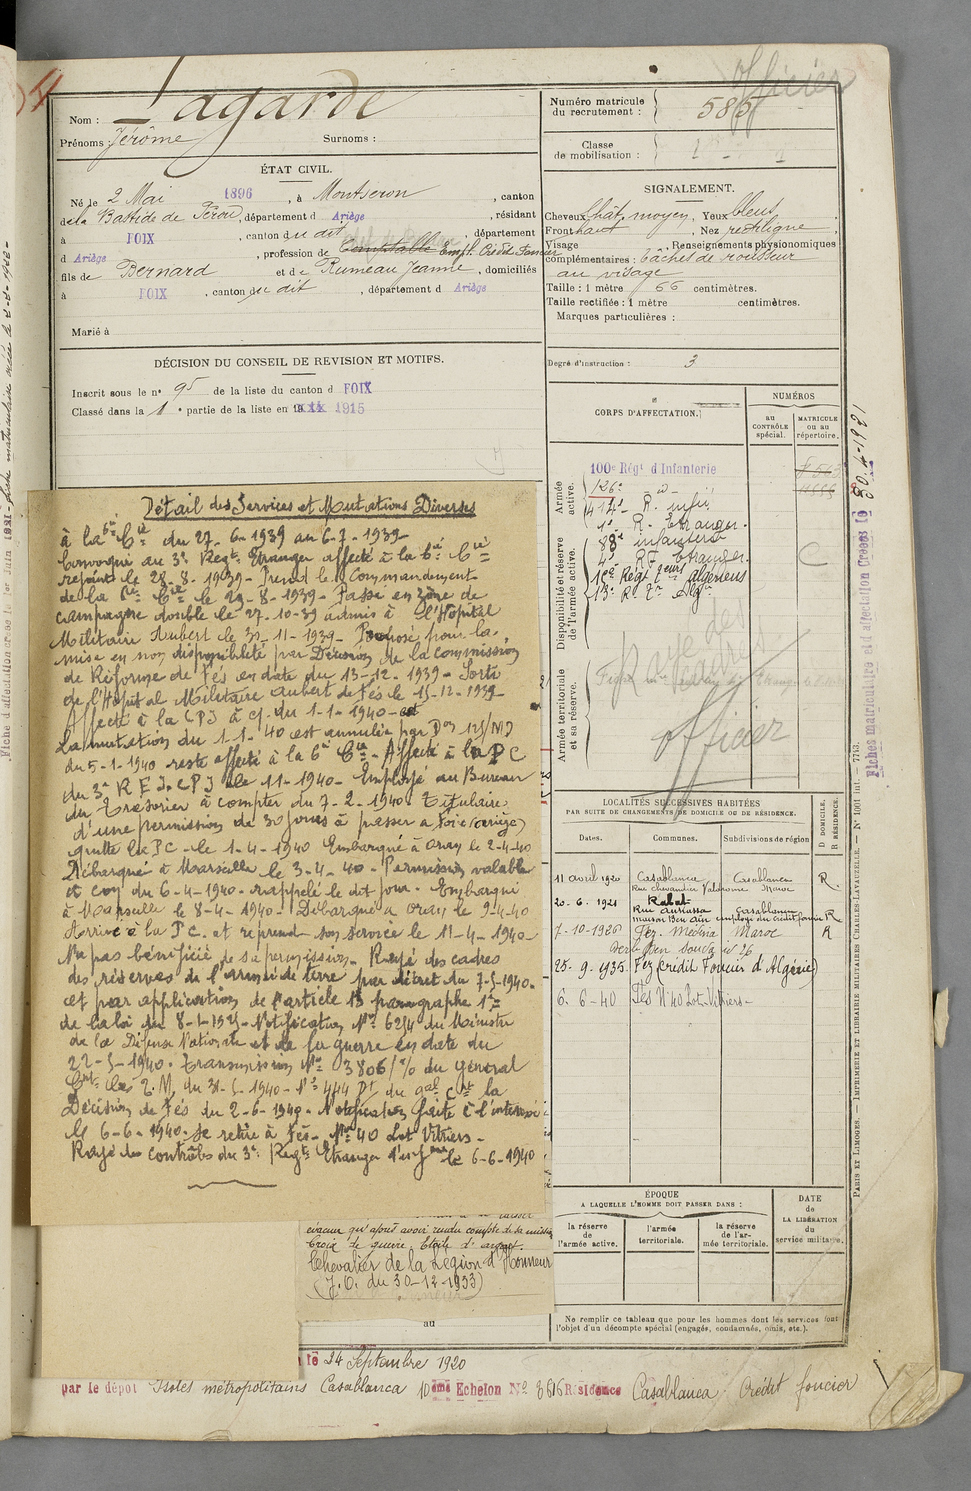 officier
Nom : Lagarde
Prénoms : Jérôme Surnoms :
Numéro matricule du recrutement : 585
Classe de mobilisation :
ÉTAT CIVIL.
Né le 2 Mai 1896, à Montseron, canton
de la Bastide de Sérou, département d Ariège, résidant
à FOIX, canton du dit, département
d Ariège, profession de Comptable Empl. Crédit Foncier
fils de Bernard et de Rumeau Jeanne, domiciliés
à FOIX, canton du dit, département d Ariège
Marié à
SIGNALEMENT.
Cheveux chât. moyen, Yeux bleus,
Front haut, Nez rectiligne,
Visage Renseignements physionomiques
complémentaires : tâches de rousseur
au visage
Taille : 1 mètre 66 centimètres.
Taille rectifiée : 1 mètre centimètres.
Marques particulières :
Degré d'instruction : 3
DÉCISION DU CONSEIL DE REVISION ET MOTIFS.
Inscrit sous le n° 95 de la liste du canton d FOIX
Classé dans la 1e partie de la liste en 1915
CORPS D'AFFECTATION.
NUMÉROS
au CONTRÔLE spécial.
MATRICULE ou au répertoire.
Armée active.
100e Régt d'Infanterie
126e d-
414e R. infie
1er R. Etranger.
Disponibilité et réserve de l'armée active.
88e infanterie
4e R.E. Etranger.
16e Régt Tirs algériens
13e R. Tr Alg.
C
Armée territoriale et sa réserve.
Rayé des cadres
officier
LOCALITÉS SUCCESSIVES HABITÉES
PAR SUITE DE CHANGEMENTS DE DOMICILE OU DE RÉSIDENCE.
Dates. Communes. Subdivisions de région
D DOMICILE.
R RÉSIDENCE.
11 avril 1920 Casablanca Casablanca R.
Rue chevandier Valdrome Maroc
20-6-1921 Rabat
Rue Auriassa Casablanca
maison Ben Aïn employé du crédit foncier R
7-10-1926 Fez. Médina Maroc R
Derb Ben Souda n° 26
25-9-1935. Fez (crédit Foncier d'Algérie)
6-6-40 Fès N° 40 Lot-Vitriers-
ÉPOQUE
A LAQUELLE L'HOMME DOIT PASSER DANS :
la réserve de l'armée active.
l'armée territoriale.
la réserve de l'armée territoriale.
DATE de LA LIBÉRATION du service militaire.
Ne remplir ce tableau que pour les hommes dont les services font
l'objet d'un décompte spécial (engagés, condamnés, omis, etc.).
Détail des Services et Mutations Diverses
à la 6e Cie du 27-6-1939 au 6-7-1939-
Convoqué au 3e Regt Etranger affecté à la 6e Cie
rejoint le 28-8-1939- Prend le Commandement
de la 6e Cie le 29-8-1939- Passé en zone de
campagne double le 27-10-39 admis à l'Hôpital
Militaire Aubert le 30-11-1939- Proposé pour la
mise en non disponibilité par Décision de la commission
de Réforme de Fès en date du 13-12-1939- Sorti
de l'Hôpital Militaire Aubert de Fès le 15-12-1939-
Affecté à la CPJ à cf. du 1-1-1940-
La mutation du 1-1-40 est annulée par Don 125/MJ
du 5-1-1940 reste affecté à la 6e Cie- Affecté à la P C
du 3e R E I. C P J le 11-1940- Employé au Bureau
du Trésorier à compter du 7-2-1940. Titulaire
d'une permission de 30 jours à passer à Foix (Ariège)
quitte la PC- le 1-4-1940 Embarqué à Oran le 2-4-40
Débarqué à Marseille le 3-4-40- Permission valable
à compter du 6-4-1940- rappelé le dit jour. Embarqué
à Marseille le 8-4-1940- Débarqué à Oran le 9-4-40
Arrivé à la P C. et reprend son service le 11-4-1940-
N'a pas bénéficié de sa permission- Rayé des cadres
des réserves de l'armée de terre par décret du 7-5-1940-
et par application de l'article 13 paragraphe 1er
de la loi du 8-1-1925- Notification No 6254 du Ministre
de la Défense Nationale et de la guerre en date du
22-5-1940. Transmission No 03806/% du Général
Cmt les T.M, du 31-5-1940- No 444 Dt du gal Cmt la
Division de Fès du 2-6-1940- Notification faite à l'intéressé
le 6-6-1940- se retire à Fès- No 40 Lot Vitriers-
Rayé des contrôles du 3e Regt Etranger d'Infie le 6-6-1940
évacuer qu'après avoir rendu compte de sa mission
Croix de guerre. Etoile d'argent.
Chevalier de la Légion d'Honneur
(J.O. du 30-12-1933)
au
le 24 Septembre 1920
par le dépôt Isolés métropolitains Casablanca 10ème Echelon No 8616 Résidence Casablanca Crédit foncier
Fiches matriculaire et d'affectation Créées le 30.4-1921
PARIS ET LIMOGES. — IMPRIMERIE ET LIBRAIRIE MILITAIRES CHARLES-LAVAUZELLE. — N° 1001 int. — 7713.